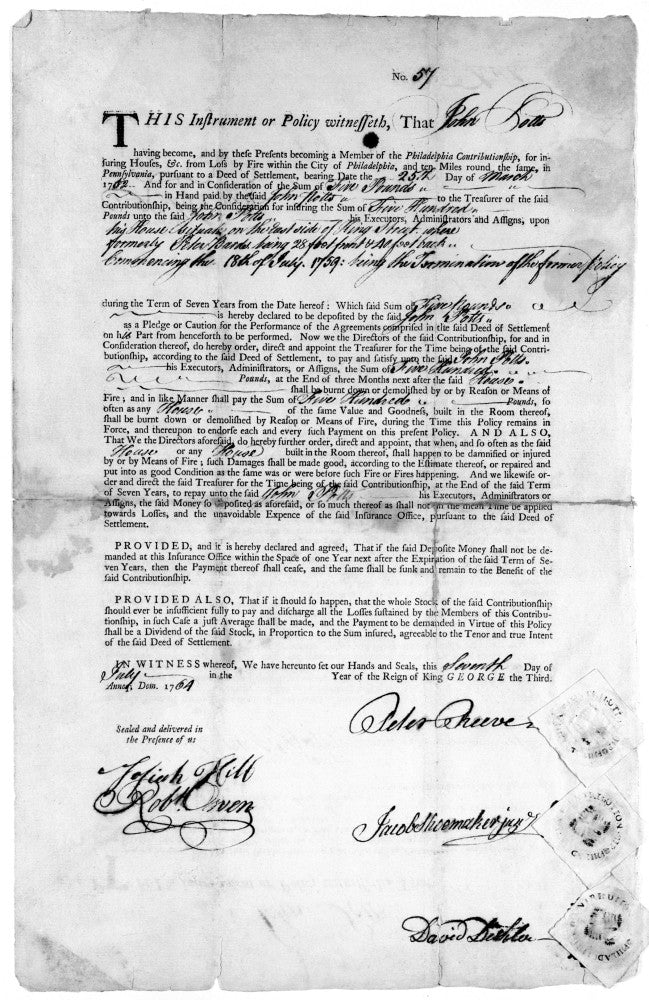 No. 57
THIS Inſtrument or Policy witneſſeth, That John Potts
having become, and by theſe Preſents becoming a Member of the Philadelphia Contributionſhip, for in-
ſuring Houſes, &c. from Loſs by Fire within the City of Philadelphia, and ten Miles round the ſame, in
Pennſylvania, purſuant to a Deed of Settlement, bearing Date the 25th Day of March
1762 And for and in Conſideration of the Sum of Five Pounds
in Hand paid by the ſaid John Potts to the Treaſurer of the ſaid
Contributionſhip, being the Conſideration for inſuring the Sum of Five Hundred
Pounds unto the ſaid John Potts his Executors, Adminiſtrators and Aſſigns, upon
his House Situate on the East side of King Street where
formerly Peter Bards being 28 foot front & 40 foot back
Commencing the 18th of July 1759: being the Termination of the former Policy
during the Term of Seven Years from the Date hereof: Which ſaid Sum of Five Pounds
is hereby declared to be depoſited by the ſaid John Potts
as a Pledge or Caution for the Performance of the Agreements compriſed in the ſaid Deed of Settlement
on his Part from henceforth to be performed. Now we the Directors of the ſaid Contributionſhip, for and in
Conſideration thereof, do hereby order, direct and appoint the Treaſurer for the Time being of the ſaid Contri-
butionſhip, according to the ſaid Deed of Settlement, to pay and ſatisfy unto the ſaid John Potts
his Executors, Adminiſtrators, or Aſſigns, the Sum of Five Hundred
Pounds, at the End of three Months next after the ſaid House
ſhall be burnt down or demoliſhed by or by Reaſon or Means of
Fire; and in like Manner ſhall pay the Sum of Five Hundred Pounds, ſo
often as any House of the ſame Value and Goodneſs, built in the Room thereof,
ſhall be burnt down or demoliſhed by Reaſon or Means of Fire, during the Time this Policy remains in
Force, and thereupon to endorſe each and every ſuch Payment on this preſent Policy. AND ALSO,
That We the Directors aforeſaid, do hereby further order, direct and appoint, that when, and ſo often as the ſaid
House or any House built in the Room thereof, ſhall happen to be damnified or injured
by or by Means of Fire; ſuch Damages ſhall be made good, according to the Eſtimate thereof, or repaired and
put into as good Condition as the ſame was or were before ſuch Fire or Fires happening. And we likewiſe or-
der and direct the ſaid Treaſurer for the Time being of the ſaid Contributionſhip, at the End of the ſaid Term
of Seven Years, to repay unto the ſaid John Potts his Executors, Adminiſtrators or
Aſſigns, the ſaid Money ſo depoſited as aforeſaid, or ſo much thereof as ſhall not in the mean Time be applied
towards Loſſes, and the unavoidable Expence of the ſaid Inſurance Office, purſuant to the ſaid Deed of
Settlement.
PROVIDED, and it is hereby declared and agreed, That if the ſaid Depoſite Money ſhall not be de-
manded at this Inſurance Office within the Space of one Year next after the Expiration of the ſaid Term of Se-
ven Years, then the Payment thereof ſhall ceaſe, and the ſame ſhall be ſunk and remain to the Benefit of the
ſaid Contributionſhip.
PROVIDED ALSO, That if it ſhould ſo happen, that the whole Stock of the ſaid Contributionſhip
ſhould ever be inſufficient fully to pay and diſcharge all the Loſſes ſuſtained by the Members of this Contribu-
tionſhip, in ſuch Caſe a juſt Average ſhall be made, and the Payment to be demanded in Virtue of this Policy
ſhall be a Dividend of the ſaid Stock, in Proportion to the Sum inſured, agreeable to the Tenor and true Intent
of the ſaid Deed of Settlement.
IN WITNESS whereof, We have hereunto ſet our Hands and Seals, this Seventh Day of
July in the Year of the Reign of King GEORGE the Third.
Annoq; Dom. 1764
Peter Reeve
Sealed and delivered in
the Preſence of us
Josiah Hill
Robt. Owen
Jacob Shoemaker junr
David Deshler